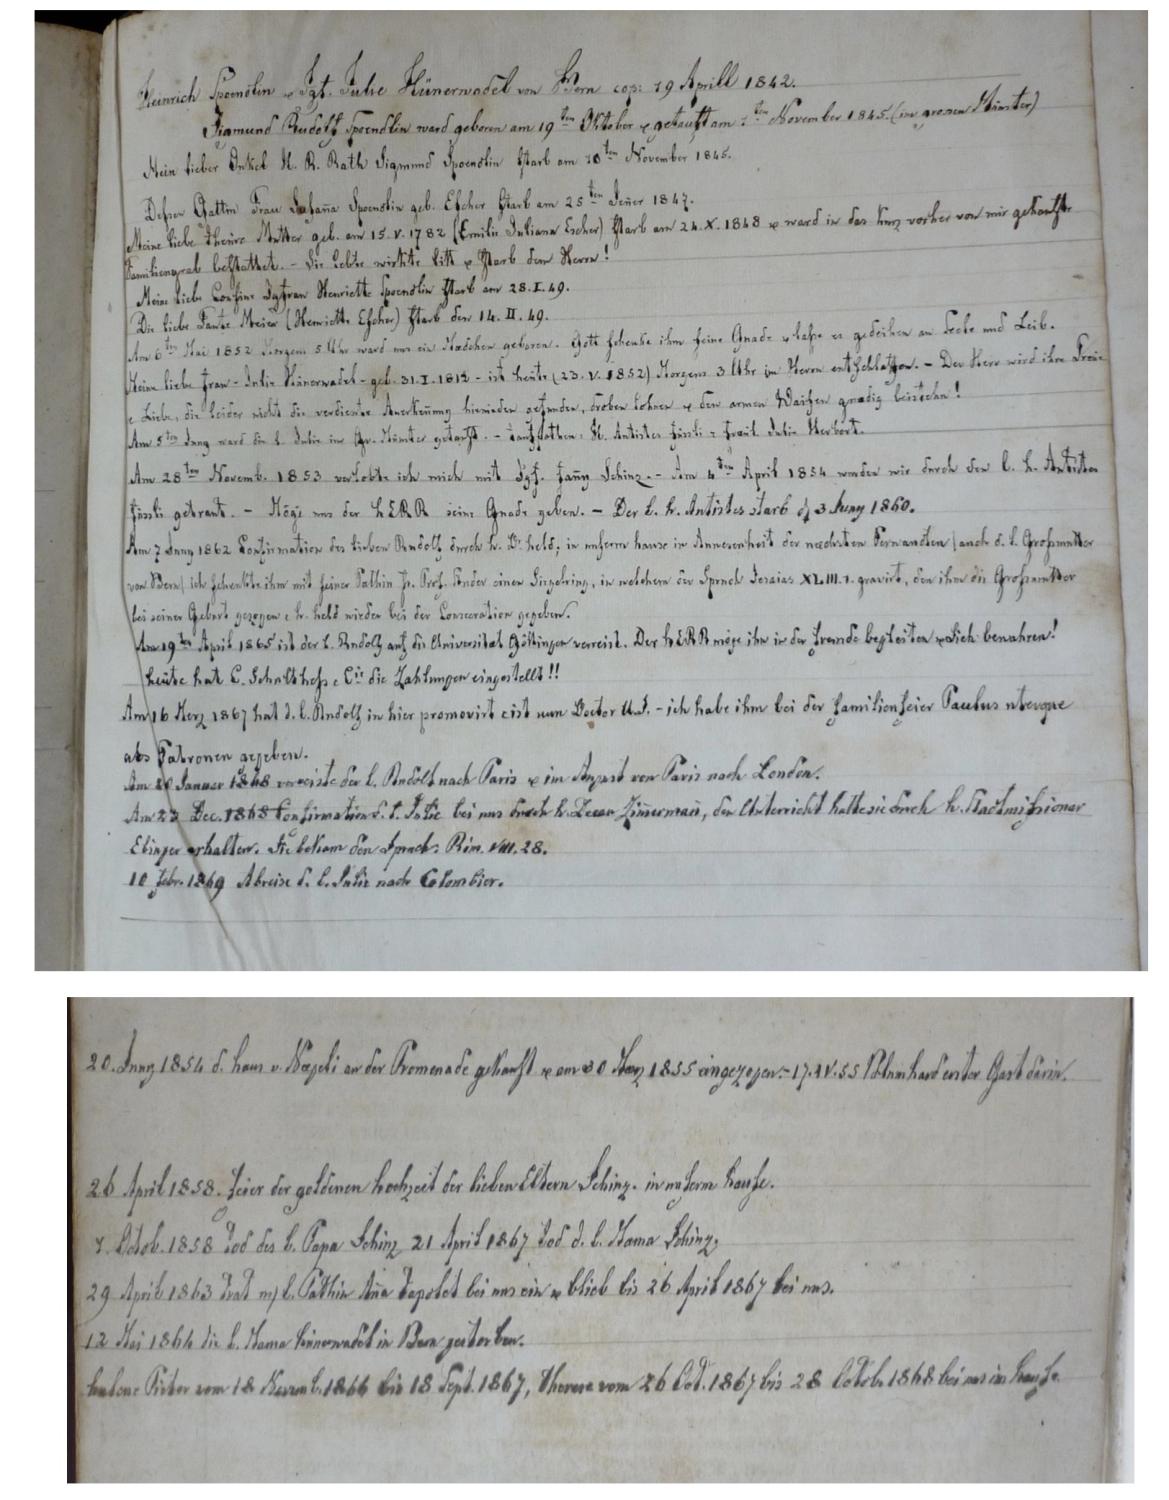 Heinrich Spoendlin u Jgf. Julie Hünerwadel von Bern cop: 19 Aprill 1842.
Sigmund Rudolf Spoendlin ward geboren am 19ten Oktober u getauft am ten November 1845. (im grossen Münster)
Mein lieber Onkel H. R. Rath Sigmund Spoendlin starb am 10ten November 1845.
Dessen Gattin Frau Susaña Spoendlin geb. Escher starb am 25ten Jeñer 1847.
Meine liebe theure Mutter geb. am 15. V. 1782 (Emilie Juliana Escher) starb am 24. X. 1848 u ward in das kurz vorher von mir gekaufte
Familiengrab bestattet. - Sie lebte wirkte litt u starb dem Herrn!
Meine liebe Cousine Jgfrau Henriette Spoendlin starb am 28. I. 49.
Die liebe Tante Meier (Henriette Escher) starb den 14. II. 49.
Am 6ten Mai 1852 Morgens 5 Uhr ward uns ein Mædchen geboren. Gott schenke ihm seine Gnade u lasse es gedeihen an Seele und Leib.
Meine liebe Frau - Julie Hünerwadel - geb. 31. I. 1812 - ist heute (23. V. 1852) Morgens 3 Uhr im Herrn entschlafen. - Der Herr wird ihre Treue
e Liebe, die leider nicht die verdiente Anerkeñung hienieden gefunden, droben lohnen u den armen Waisen gnædig beistehn!
Am 5ten Juny ward die l. Julie im Gr. Münster getauft. - Taufpathen: H. Antistes Füssli e Fraül. Julie Herbort.
Am 28ten Novemb. 1853 verlobte ich mich mit Jgf. Fañy Schinz. - Am 4ten April 1854 wurden wir durch den l. h. Antistes
Füssli getraut. - Möge uns der hERR seine Gnade geben. - Der l. h. Antistes starb d 3 Juny 1860.
Am 7 Juny 1862 Confirmation des lieben Rudolf durch h. Dr. held, in unserm hause in Anwesenheit der næchsten Verwandten (auch d. l. Großmutter
von Bern) ich schenkte ihm mit seiner Pathin Fr. Prof. einen Siegelring, in welchem der Spruch Jesaias XLIII. 1. gravirt, den ihm die Großmutter
bei seiner Geburt gezogen e h. held wieder bei der Consecration gegeben.
Am 19ten April 1865 ist der l. Rudolf auf die Universität Göttingen verreist. Der hERR möge ihn in der Fremde begleiten u bewahren!
heute hat C. Schulthess e Cie die Zahlungen eingestellt!!
Am 16 Merz 1867 hat d. l. Rudolf in hier promovirt e ist nun Doctor U. J. - ich habe ihm bei der Familienfeier Paulus
als Patronen gegeben.
Am 20 Januar 1868 verreiste der l. Rudolf nach Paris u im August von Paris nach London.
Am 23 Dec. 1868 Confirmation d. l. Julie bei uns durch h. Zimermañ, den Unterricht hatte sie durch h. Stadtmissionar
Ebinger erhalten. Sie bekam den Spruch: Röm. VIII. 28.
10 Febr. 1869 Abreise d. l. Julie nach Colombier.
20. Juny 1854 d. haus v. Nægeli an der Promenade gekauft u am 30 Merz 1855 eingezogen. - 17. IV. 55 Blumhard erster Gast darin.
26 April 1858. Feier der goldenen hochzeit der lieben Eltern Schinz. in unserm hause.
Octob. 1858 Tod des l. Papa Schinz 21 April 1867 Tod d. l. Mama Schinz.
29 April 1863 Trat m. l. Pathin Aña Tapolet bei uns ein u blieb bis 26 April 1867 bei uns.
12 Mai 1864 die l. Mama hünerwadel in Bern gestorben.
helene vom 18 1866 bis 18 Sept. 1867, Therese vom 26 Oct. 1867 bis 28 Octob. 1868 bei uns im hause.